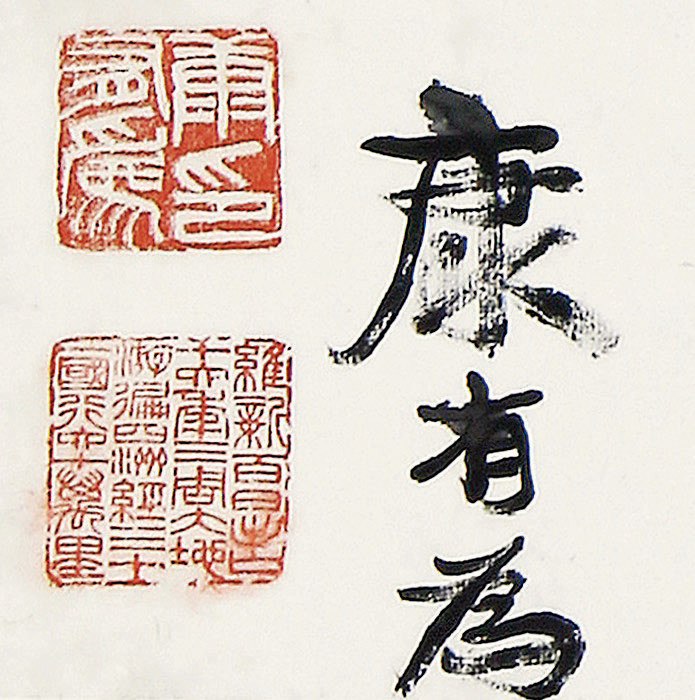 康有為
康有為印
維新百日出
亡十六年三周大地
游遍四洲經三十一
國行六十萬里